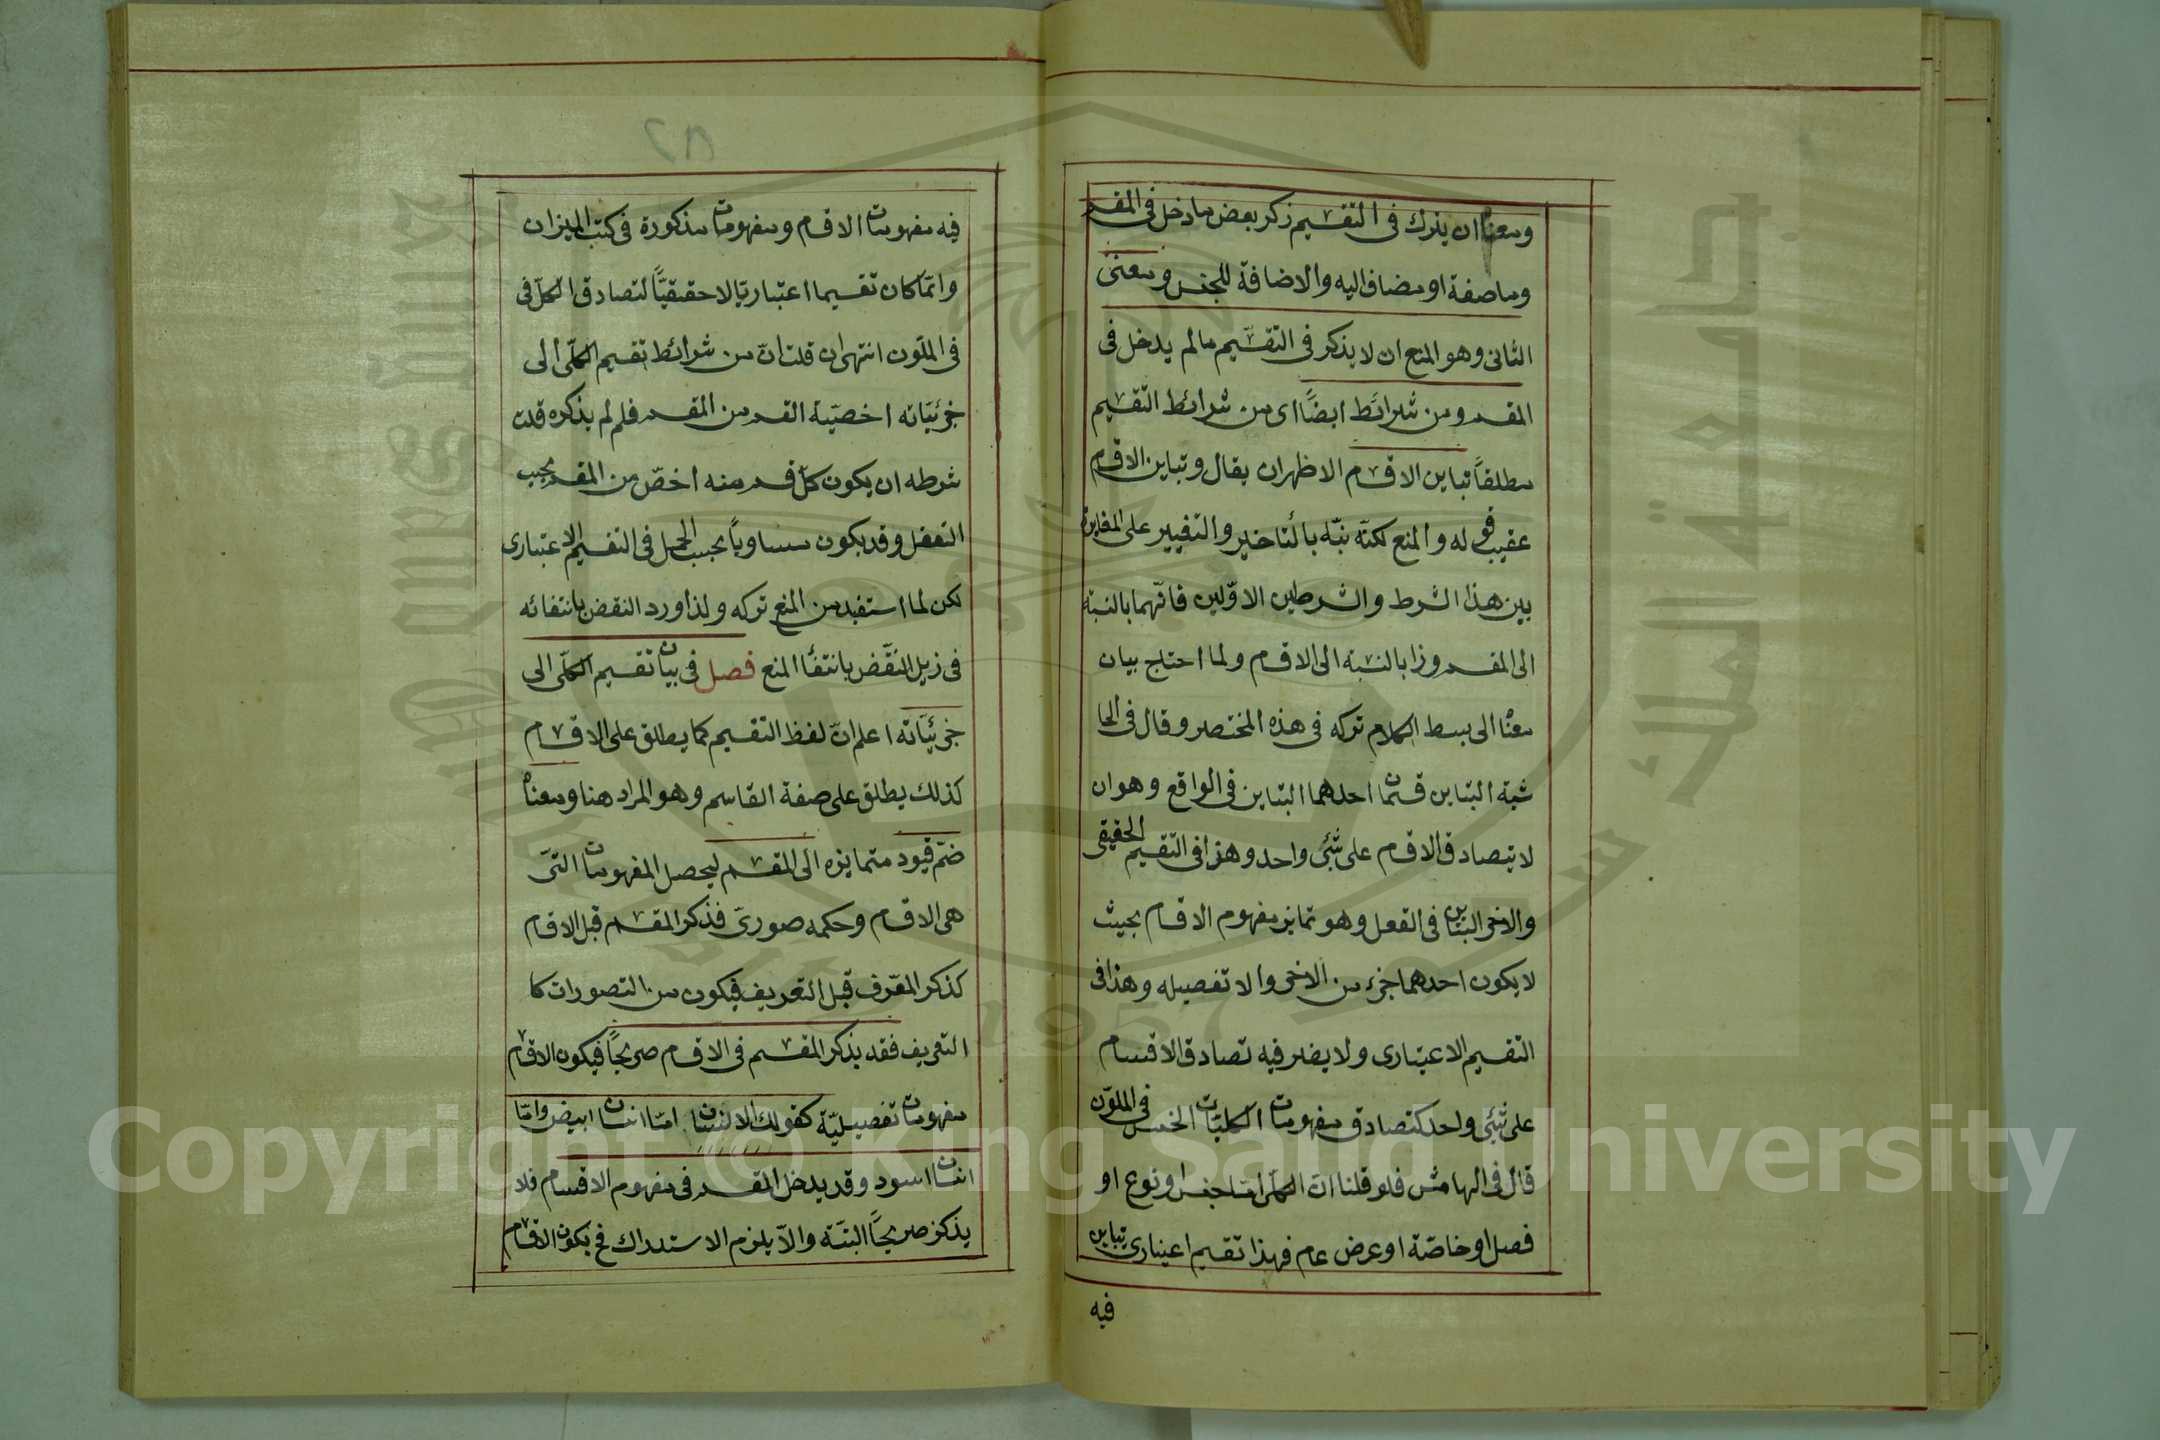 ومعناه ان يترك فى التقسيم ذكر بعض ما دخل فى المقسم
وما صفة او مضاف اليه والاضافة للجنس ومعنى
الثانى وهو المنع ان لا يذكر فى التقسيم ما لم يدخل فى
المقسم ومن شرائط ايضًا اى من شرائط التقسيم
مطلقاً تباين الاقسام الاظهر ان يقال وتباين الاقسام
عقيب قوله والمنع لكنّه نبّه بالتأخير والتغيير على المغايرة
بين هذا الشرط والشرطين الاوّلين فانّهما بالنسبة
الى المقسم وذا بالنسبة الى الاقسام ولما احتاج بيان
معناه الى بسط الكلام تركه فى هذه المختصر وقال فى الحا
شية التباين قسمان احدهما التباين فى الواقع وهو ان
لا يتصادق الاقسام على شئ واحد وهذا فى التقسيم الحقيقى
والاخر التباين فى العقل وهو تمايز مفهوم الاقسام بحيث
لا يكون احدهما جزء من الاخر والا تفصيله وهذا فى
التقسيم الاعتبارى ولا يضر فيه تصادق الاقسام
على شئ واحد كتصادق مفهومات الكليات الخمس فى الملوّن
قال فى الهامش فلو قلنا ان الكلّى امّا جنس او نوع او
فصل او خاصّة او عرض عام فهذا تقسيم اعتبارى تباين
فيه
٢٨
فيه مفهومات الاقسام ومفهومات مذكورة فى كتب الميزان
وانّما كان تقسيما اعتباريّا لا حقيقيّاً لتصادق الكلّ فى
فى الملوّن انتهى ان قلت انّ من شرائط تقسيم الكلّى الى
جزئيّاته اخصيّة القسم من المقسم فلم لم يذكره قلت
شرطه ان يكون كلّ قسم منه اخصّ من المقسم بحسب
التعقل وقد يكون مساوياً بحسب الحمل فى التقسيم الاعتبارى
لكن لما استفيد من المنع تركه ولذا ورد النقض بانتفائه
فى ذيل النقض بانتفاء المنع فصل فى بيان تقسيم الكلّى الى
جزئيّاته اعلم انّ لفظ التقسيم كما يطلق على الاقسام
كذلك يطلق على صفة القاسم وهو المراد هنا ومعناه
ضمّ قيود متمايزه الى المقسم ليحصل المفهومات التى
هى الاقسام وحكمه صورىّ فذكر المقسم قبل الاقسام
كذكر المعّرف قبل التعريف فيكون من التصورات كما
التعريف فقد يذكر المقسم فى الاقسام صريحاً فيكون الاقسام
مفهومات تفصيليّة كقولك الانسان امّا انسان ابيض وامّا
انسان اسود وقد يدخل المقسم فى مفهوم الاقسام فلا
يذكر صريحاً البتّة والاّ يلزم الاستدراك فح يكون الاقسام
Copyright © King Saud University
جامعة الملك سعود
King Saud University
1957